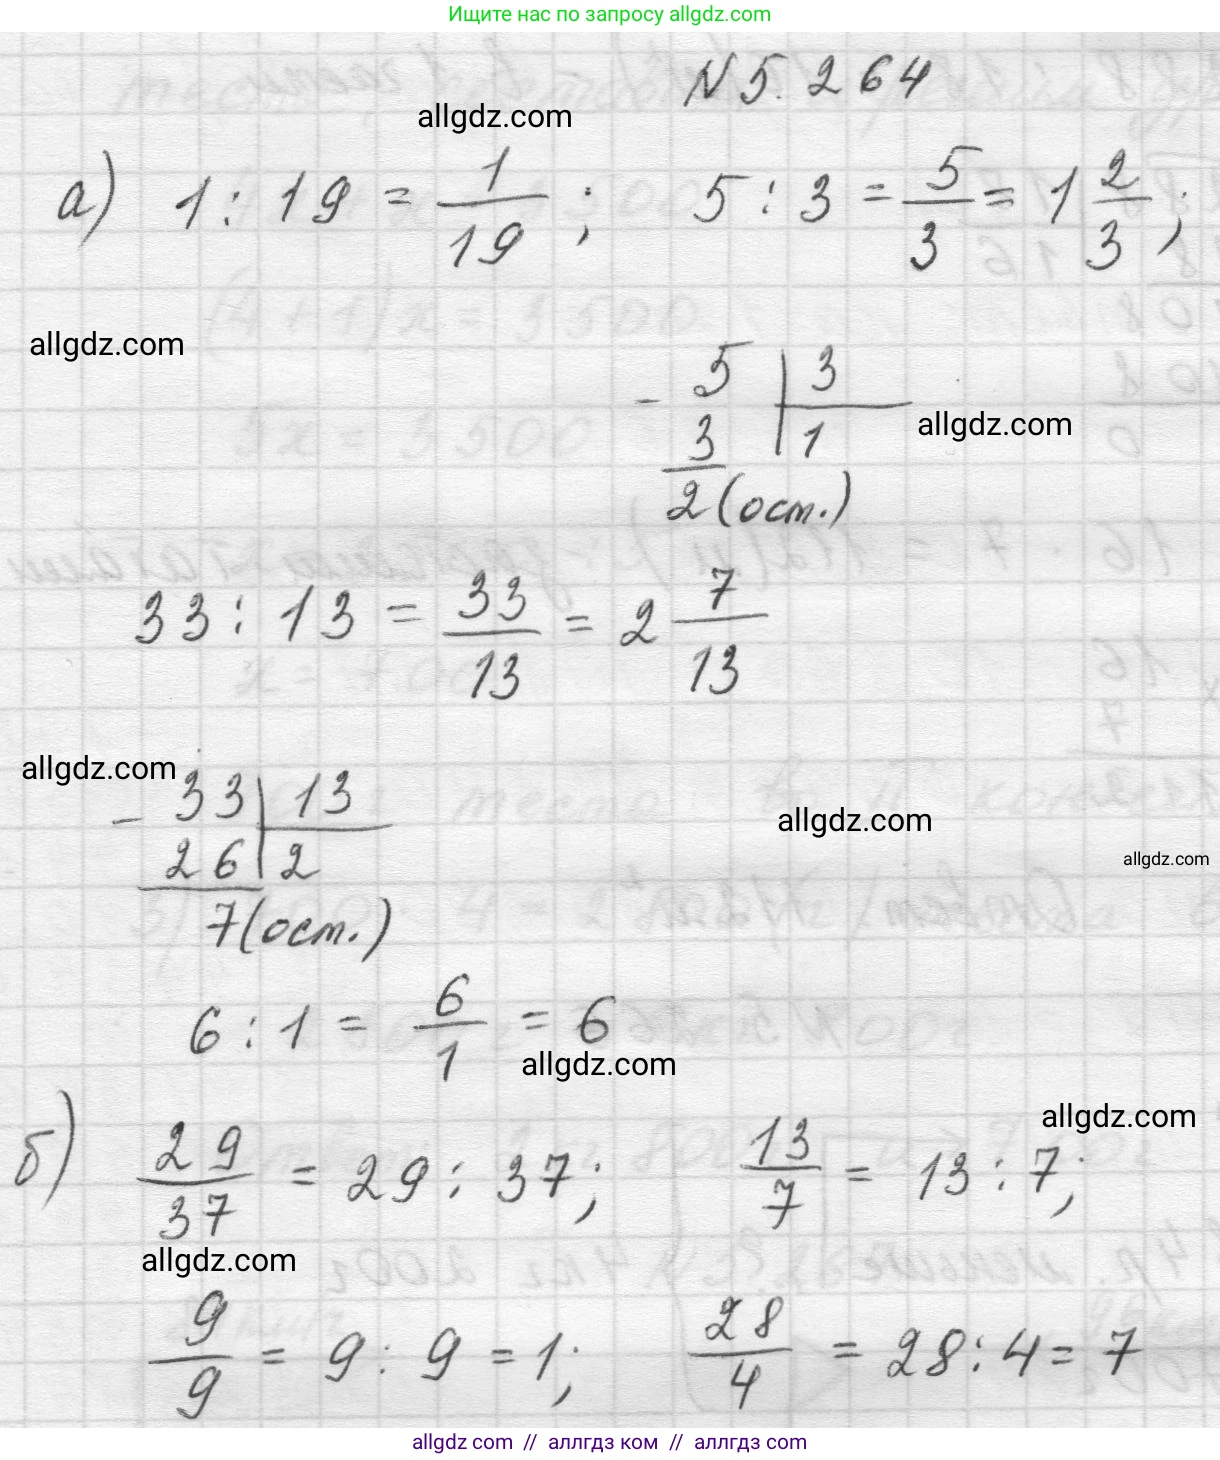 Ищите нас по запросу allgdz.com
N 5.264
allgdz.com
а) 1 : 19 = 1/19 ; 5 : 3 = 5/3 = 1 2/3 ;
allgdz.com
- 5 | 3
3 | 1
allgdz.com
2 (ост.)
33 : 13 = 33/13 = 2 7/13
allgdz.com
- 33 | 13
allgdz.com
26 | 2
allgdz.com
7 (ост.)
6 : 1 = 6/1 = 6
allgdz.com
allgdz.com
б) 29/37 = 29 : 37; 13/7 = 13 : 7;
allgdz.com
9/9 = 9 : 9 = 1; 28/4 = 28 : 4 = 7
allgdz.com // аллгдз ком // аллгдз.com